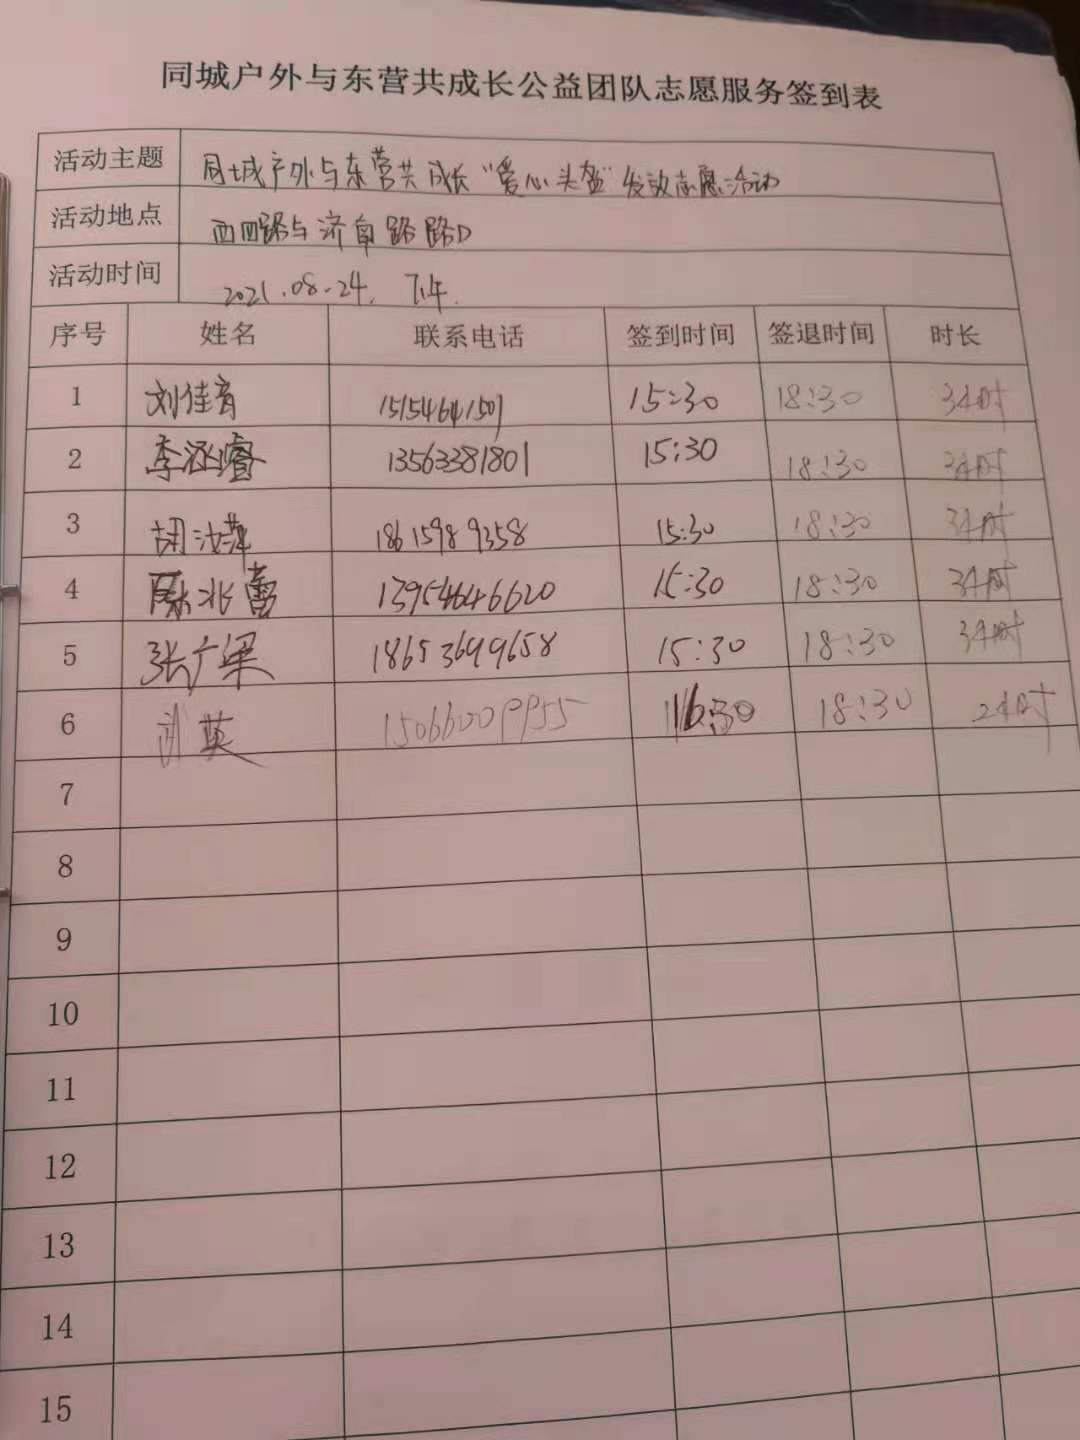 同城户外与东营共成长公益团队志愿服务签到表
活动主题 同城户外与东营共成长“爱心头盔”发放志愿活动
活动地点 西四路与济南路路口
活动时间 2021.08.24. 下午.
序号 姓名 联系电话 签到时间 签退时间 时长
1 刘佳音 15154641501 15:30 18:30 3小时
2 李涵睿 13563381801 15:30 18:30 3小时
3 胡 18615989358 15:30 18:30 3小时
4 13954646620 15:30 18:30 3小时
5 张广梁 18653699658 15:30 18:30 3小时
6 刘英 15066009955 16:30 18:30 2小时
7
8
9
10
11
12
13
14
15